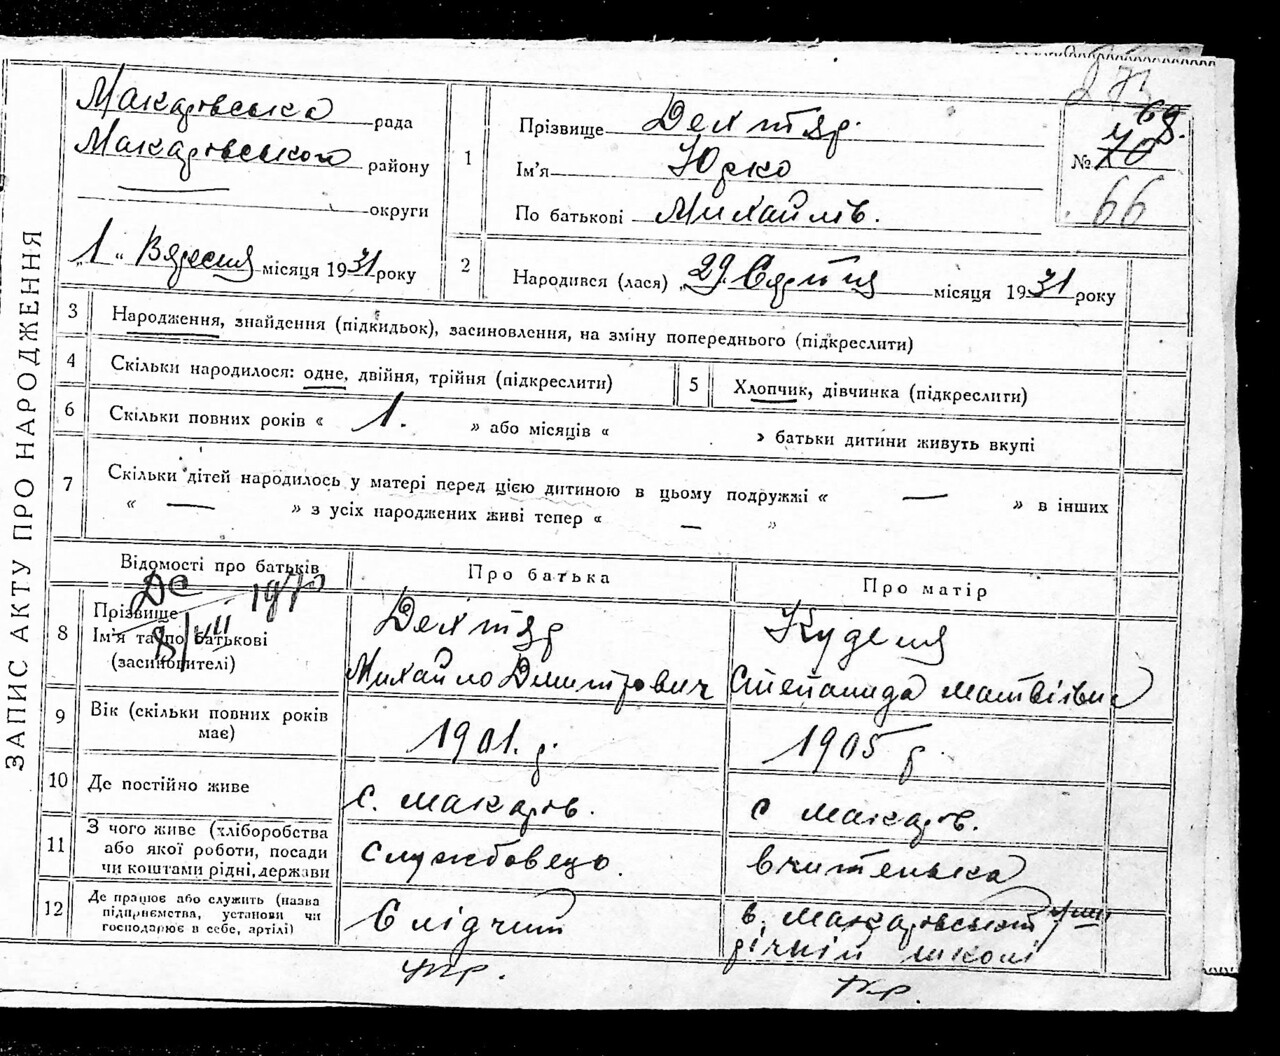 ЗАПИС АКТУ ПРО НАРОДЖЕННЯ
273
Макарівська рада
Макарівського району
округи
„1“ Вересня місяця 1931 року
1
Прізвище Дехтяр.
Ім'я Юрко
По батькові Михайлів.
68.
№ 70
66
2
Народився (лася) 29. Серпня місяця 1931 року
3 Народження, знайдення (підкидьок), засиновлення, на зміну попереднього (підкреслити)
4 Скільки народилося: одне, двійня, трійня (підкреслити)
5 Хлопчик, дівчинка (підкреслити)
6 Скільки повних років « 1. » або місяців « » батьки дитини живуть вкупі
7 Скільки дітей народилось у матері перед цією дитиною в цьому подружжі « — » в інших
« — » з усіх народжених живі тепер « — »
Відомості про батьків
Про батька
Про матір
1970
8/VIII
8 Прізвище
Ім'я та по батькові
(засиновителі)
Дехтяр
Михайло Димитрович
Куделя
Степанида Матвіївна
9 Вік (скільки повних років
має)
1901. р.
1905 р
10 Де постійно живе
с. Макарів.
с Макарів.
11 З чого живе (хліборобства
або якої роботи, посади
чи коштами рідні, держави
Службовець.
Вчителька
12 Де працює або служить (назва
підприємства, установи чи
господарює в себе, артілі)
Слідчий
в. Макарівській
річній школі